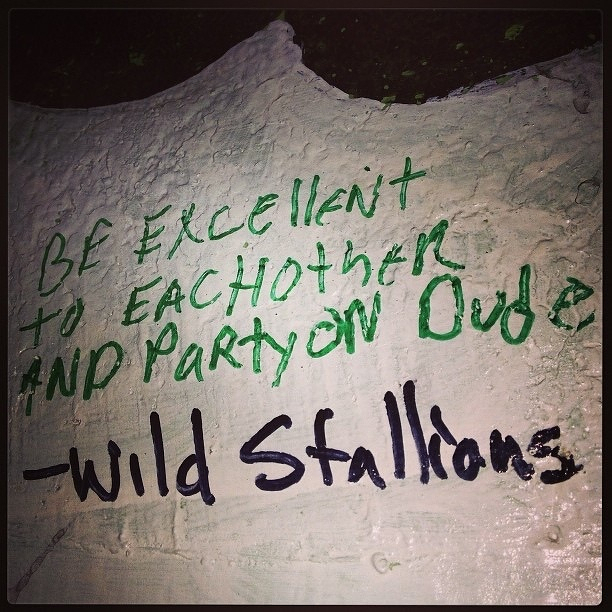 BE EXCEllENt
to EACHOtHER
AND PARty ON Dude
- Wild Stallions